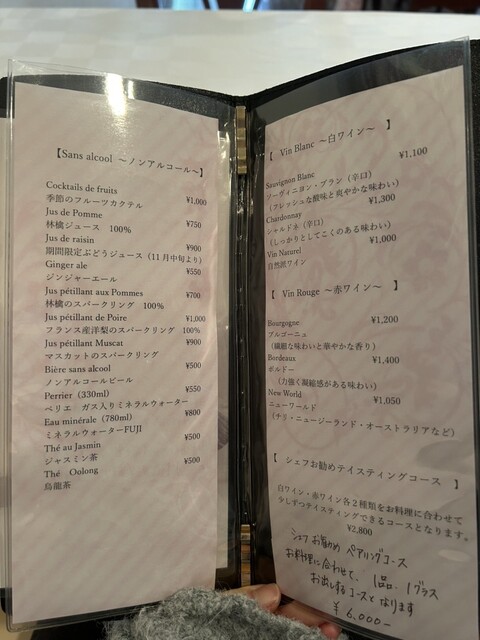 【Sans alcool ～ノンアルコール～】
Cocktails de fruits
季節のフルーツカクテル ¥1,000
Jus de Pomme
林檎ジュース 100% ¥750
Jus de raisin
期間限定ぶどうジュース（11月中旬より） ¥900
Ginger ale ¥550
ジンジャーエール
Jus pétillant aux Pommes ¥700
林檎のスパークリング 100%
Jus pétillant de Poire ¥1,000
フランス産洋梨のスパークリング 100%
Jus pétillant Muscat ¥900
マスカットのスパークリング
Bière sans alcool ¥500
ノンアルコールビール
Perrier（330ml） ¥550
ペリエ ガス入りミネラルウォーター
Eau minérale（780ml） ¥800
ミネラルウォーターFUJI
Thé au Jasmin ¥500
ジャスミン茶
Thé Oolong ¥500
烏龍茶
【 Vin Blanc ～白ワイン～ 】
¥1,100
Sauvignon Blanc
ソーヴィニヨン・ブラン（辛口）
（フレッシュな酸味と爽やかな味わい）
Chardonnay ¥1,300
シャルドネ（辛口）
（しっかりとしてこくのある味わい）
Vin Naturel ¥1,000
自然派ワイン
【 Vin Rouge ～赤ワイン～ 】
Bourgogne ¥1,200
ブルゴーニュ
（繊細な味わいと華やかな香り）
Bordeaux ¥1,400
ボルドー
（力強く凝縮感がある味わい）
New World ¥1,050
ニューワールド
（チリ・ニュージーランド・オーストラリアなど）
【 シェフお勧めテイスティングコース 】
白ワイン・赤ワイン各２種類をお料理に合わせて
少しずつテイスティングできるコースとなります。
¥2,800
シェフお勧め ペアリングコース
お料理に合わせて、1品、1グラス
お出しするコースとなります
¥6,000-